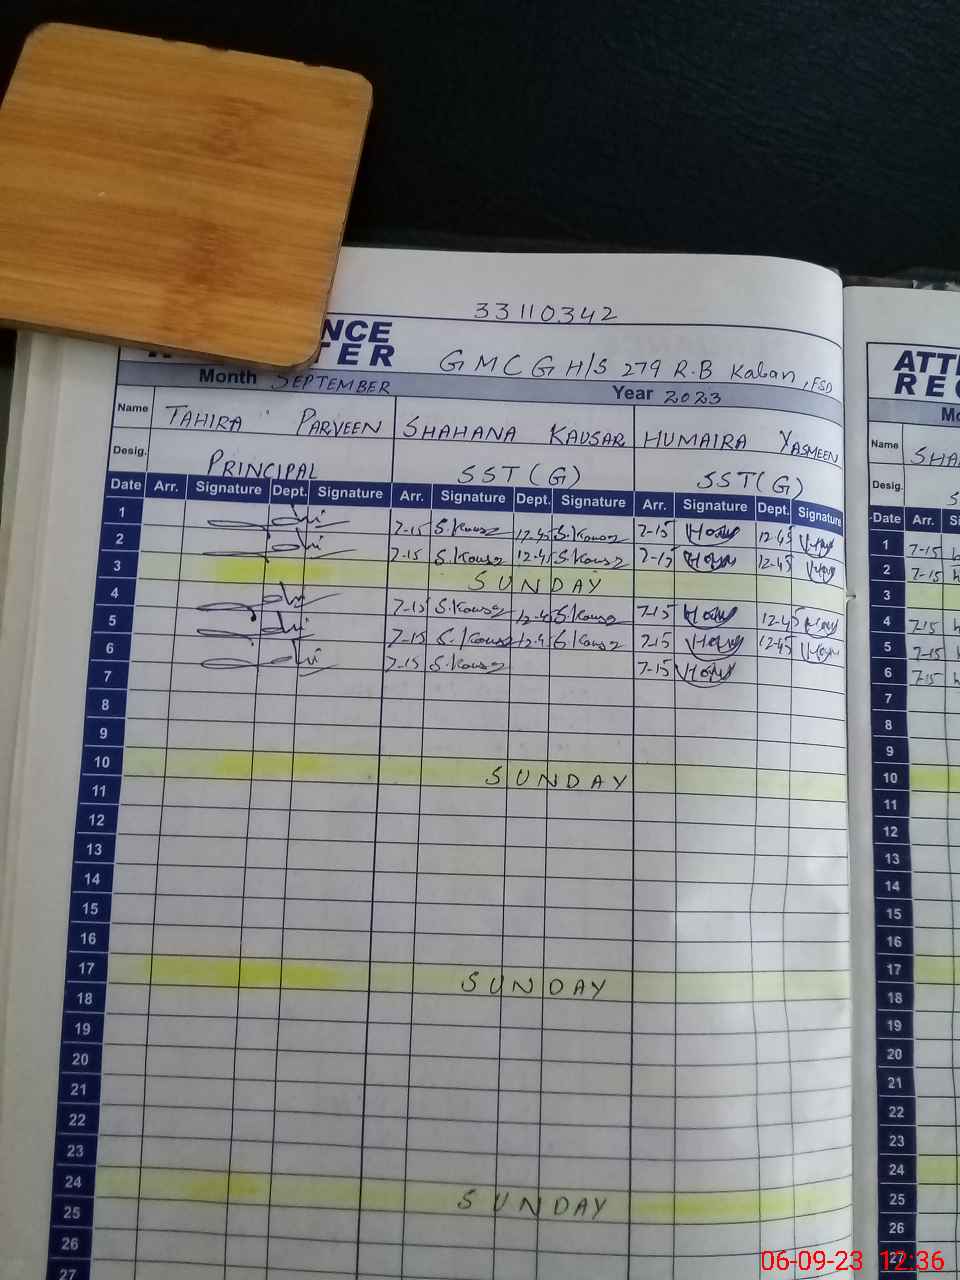 33110342
NCE
TER
GMCGH/S 279 R.B Kalan, FSD
Month SEPTEMBER Year 2023
Name TAHIRA PARVEEN SHAHANA KAUSAR HUMAIRA YASMEEN
Desig. PRINCIPAL SST(G) SST(G)
Date Arr. Signature Dept. Signature Arr. Signature Dept. Signature Arr. Signature Dept. Signature
1 7-15 S.Kausar 12-45 S.Kausar 7-15 12-45
2 7-15 S.Kausar 12-45 S.Kausar 7-15 12-45
3 SUNDAY
4 7-15 S.Kausar 12-45 S.Kausar 7-15 12-45
5 7-15 S.Kausar 12-45 S.Kausar 7-15 12-45
6 7-15 S.Kausar 7-15
7
8
9
10 SUNDAY
11
12
13
14
15
16
17 SUNDAY
18
19
20
21
22
23
24 SUNDAY
25
26
27
ATT
RE
Name
Desig.
Date Arr.
1 7-15
2 7-15
3
4 7-15
5 7-15
6 7-15
7
8
9
10
11
12
13
14
15
16
17
18
19
20
21
22
23
24
25
26
27
06-09-23 12:36